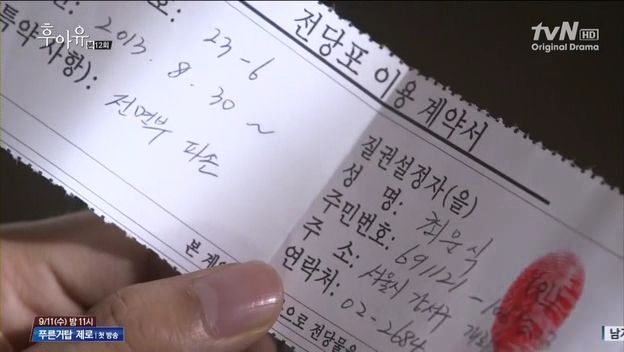 후아유 제12회
tvN HD
Original Drama
호: 23-6
2013. 8. 30 ~
특약사항):
전면부 파손
전당포 이용 계약서
질권설정자(을)
성 명: 최문식
주민번호: 691121-10
주 소: 서울시 강서구
연락처: 02-2684
(인)
본 계
으로 전당물을
9/11(수) 밤 11시
푸른거탑 제로 | 첫 방송
남자